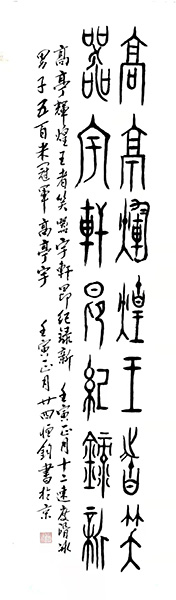 高亭煇煌王者笑
器宇軒昂紀録新
高亭輝煌王者笑器宇軒昂紀録新 壬寅正月十二速度滑冰
男子五百米冠軍高亭宇 壬寅正月廿四恒鈞書於京